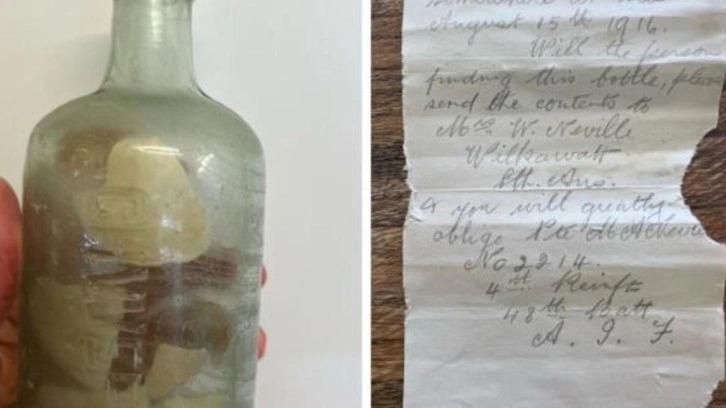 August 15th 1916.
Will the person
finding this bottle, please
send the contents to
Mrs W. Neville
Wilkawatt
Sth. Aus.
& you will greatly
oblige Pte M A Nevi
No 2214.
4th Reinfts
48th Batt
A. I. F.